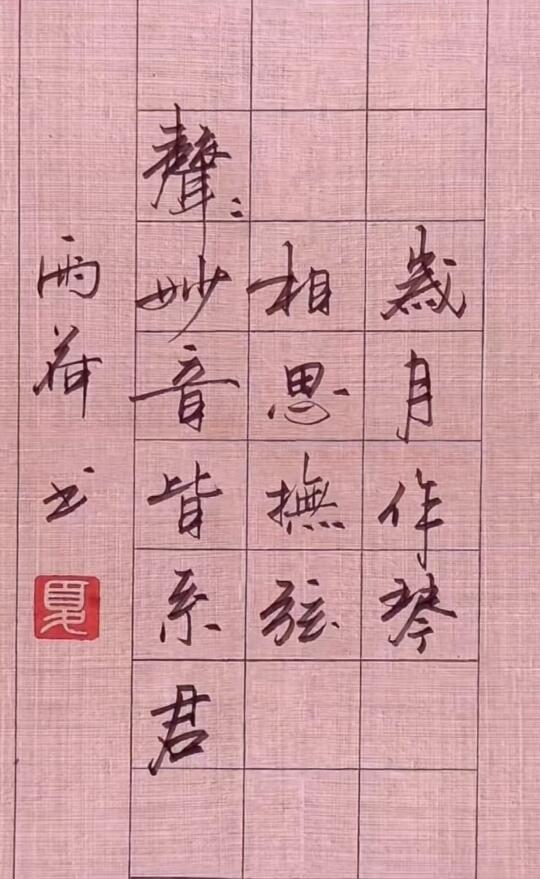 歲月作琴
相思撫弦
聲:妙音皆系君
雨荷书
夏